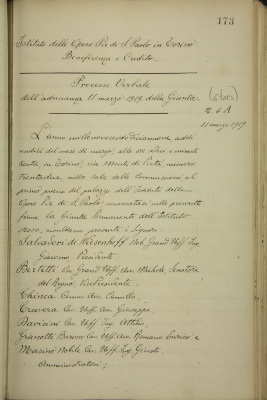 173
Istituto delle Opere Pie di S. Paolo in Torino
Beneficenza e Credito
Processo Verbale
dell'adunanza 11 marzo 1919 della Giunta
N. 6 A
11 marzo 1919
L'anno millenovecentodiciannove, addì
undici del mese di marzo, alle ore dieci e minuti
trenta, in Torino, via Monte di Pietà, numero
trentadue, nella sala delle Commissioni al
primo piano del palazzo dell'Istituto delle
Opere Pie di S. Paolo, convocatasi nelle prescritte
forme la Giunta permanente dell'Istituto
stesso, risultano presenti i Signori:
Salvadori di Wiesenhoff Nob. Grand' Uff. Ing.
Giacomo Presidente
Bertetti Cav. Grand' Uff. Avv. Michele, Senatore
del Regno, Vicepresidente
Chinca Comm. Avv. Camillo
Cravera Cav. Uff. Avv. Giuseppe
Cav. Uff. Ing. Attilio
Barone Cav. Uff. Avv. Romano Enrico e
Masino Nobile Cav. Uff. Ing. Giusti
Amministratori;